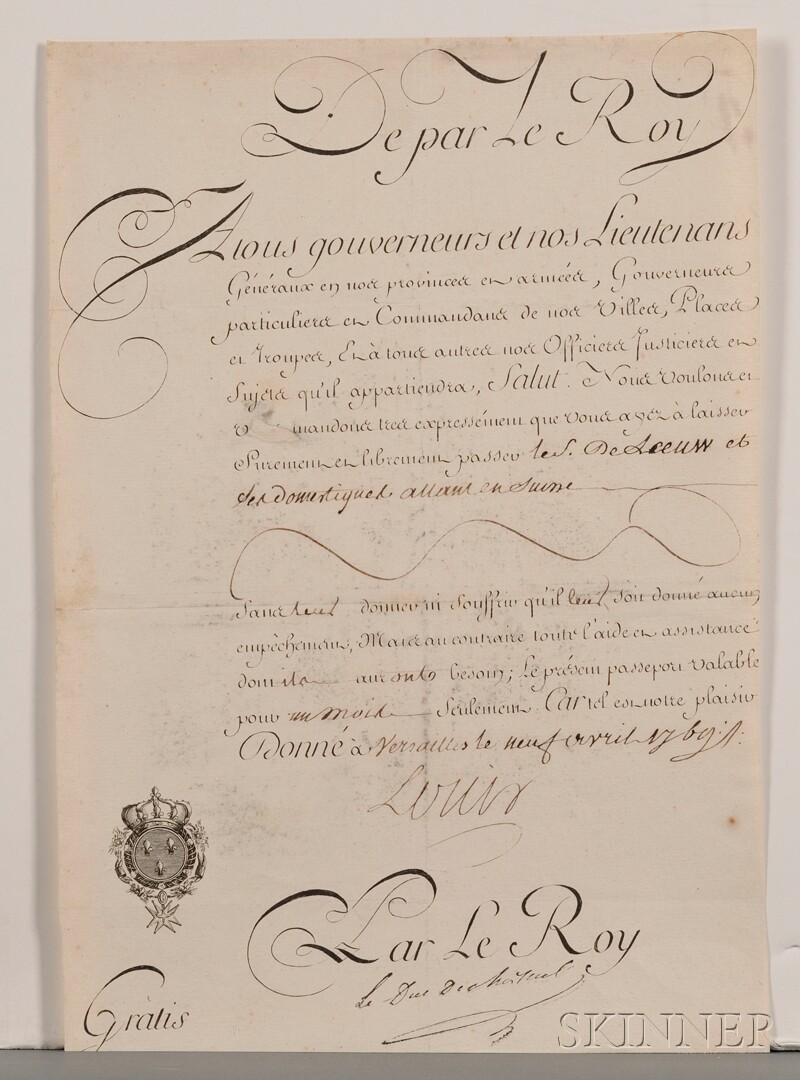 De par Le Roy
A tous gouverneurs et nos Lieutenans
Généraux en nos provinces et armées, Gouverneurs
particuliers et Commandans de nos Villes, Places
et Troupes, Et à tous autres nos Officiers Justiciers et
Sujets qu'il appartiendra, Salut. Nous voulons et
mandons tres expressément que vous ayéz à laisser
Surement et librement passer le S. De Leeuw et
ses domestiques allant en Suisse
Sans leur donner ni Souffrir qu'il leur Soit donné aucun
empêchement, Mais au contraire toute l'aide et assistance
dont ils auronts besoin; Le présent passeport valable
pour un mois Seulement. Car tel est notre plaisir
Donné à Versailles le neuf avril 1769.
Louis
Par Le Roy
Le Duc De choiseul
Gratis
SKINNER